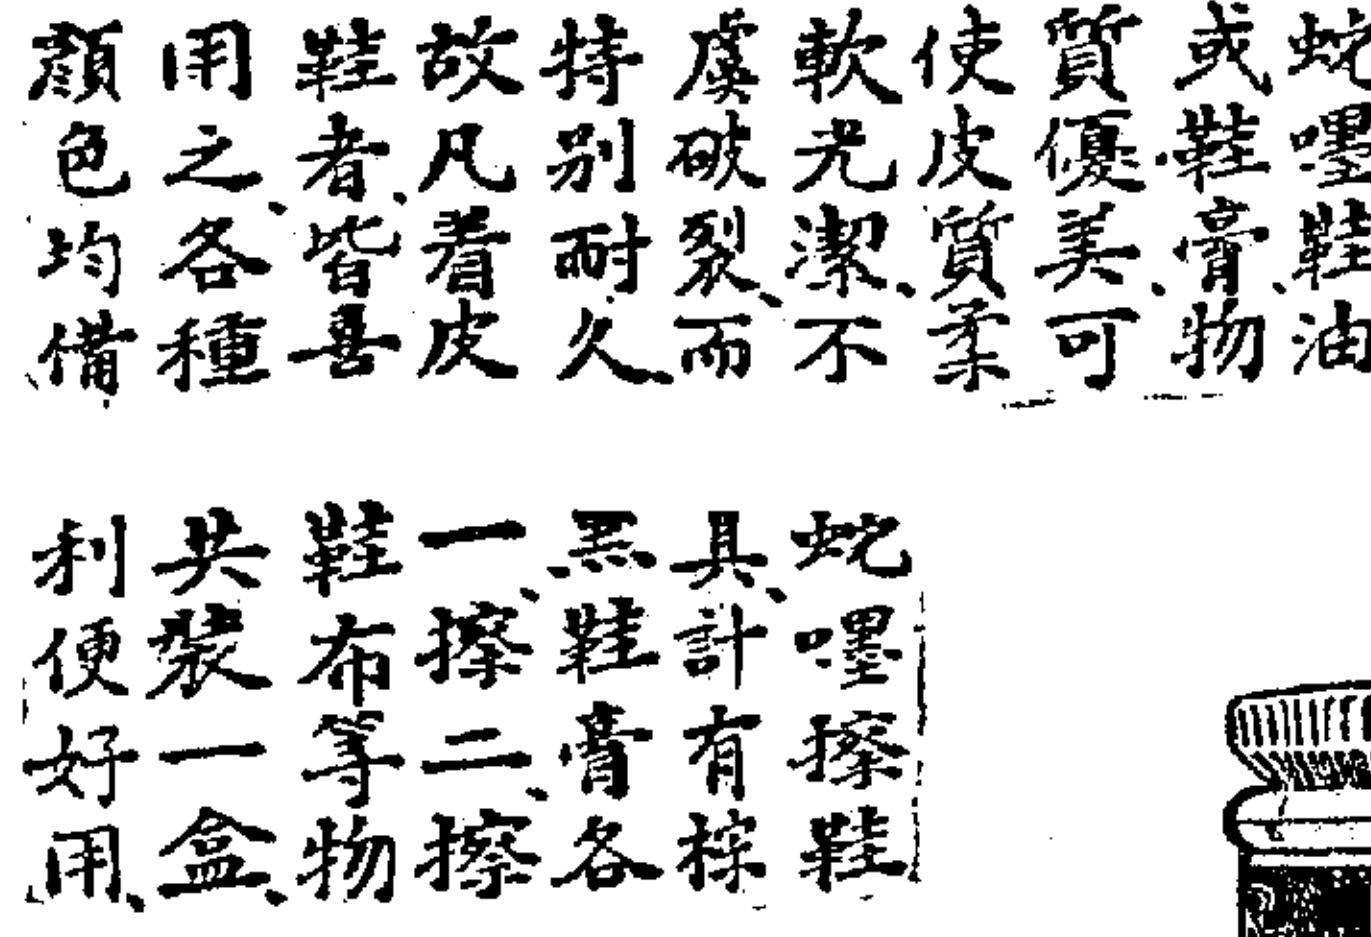 蛇嚜鞋油
或鞋膏、物
質優美、可
使皮質柔
軟光潔、不
虞破裂、而
特別耐久、
故凡着皮
鞋者、皆喜
用之、各種
顏色均備
蛇嚜擦鞋
具、計有棕
黑鞋膏各
一、擦二、擦
鞋布等物
共裝一盒、
利便好用、